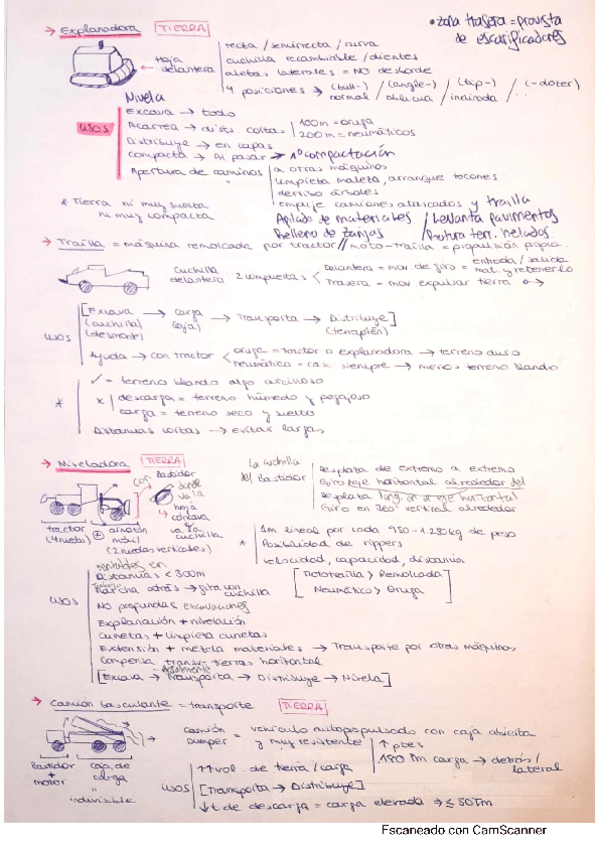 → Explanadora [TIERRA]
* zona trasera = provista
de escarificadores
← Hoja delantera
recta / semirrecta / curva
cuchilla recambiable / dientes
aletas laterales = NO desborde
4 posiciones → (bull-) normal / (angle-) oblicua / (tip-) inclinada / (-dozer) ...
USOS
Nivela
Excava → todo
Acarrea → dists. cortas | 100m = oruga
200m = neumáticos
Distribuye → en capas
Compacta → Al pasar → 1º compactación
Apertura de caminos
a otras máquinas
limpieza maleza, arranque tocones
derribo árboles
empuje camiones atascados y trailla
* Tierra ni muy suelta
ni muy compacta
Apilado de materiales / Levanta pavimentos
Relleno de zanjas / Rotura terr. helados
→ Trailla = máquina remolcada por tractor // moto-trailla = propulsión propia.
cuchilla delantera · 2 compuertas <
Delantera = mov. de giro = entrada / salida mat. y retenerlo
Trasera = mov. expulsar tierra ↔
USOS
[Excava → Carga → Transporta → Distribuye]
(cuchilla) (caja) (terraplén)
(desmonte)
Ayuda → con tractor <
oruga = tractor o explanadora → terreno duro
neumático = casi siempre → menos terreno blando
*
✓ = terreno blando algo arcilloso
x | descarga = terreno húmedo y pegajoso
carga = terreno seco y suelto
Distancias cortas → evitar largas
→ Niveladora [TIERRA]
con Bastidor
donde va la hoja
↳ cóncava
va la cuchilla
tractor (4 ruedas) + armazón móvil (2 ruedas verticales)
La cuchilla del bastidor
Desplaza de extremo a extremo
Giro eje horizontal alrededor del
Desplaza long. en el eje horizontal
Giro en 360º vertical alrededor
*
1m lineal por cada 950 - 1.250 kg de peso
Posibilidad de rippers
velocidad, capacidad, distancia
[Mototrailla > Remolcada]
[Neumático > Oruga]
USOS
rentables en
Distancias < 300m
Marcha atrás → gira con cuchilla
No profundas excavaciones
Explanación + nivelación
Cunetas + limpieza cunetas
Extensión + mezcla materiales → Transporte por otras máquinas
Compensa transv. tierras horizontal
[Excava → Transporta → Distribuye → Nivela]
→ Camión basculante = transporte [TIERRA]
Bastidor + motor
caja de carga
indivisible
camión dumper = vehículo autopropulsado con caja abierta
y muy resistente
↑ pses
180 Tm carga → detrás / lateral
USOS
↑↑ vol. de tierra / carga
[Transporta → Distribuye]
↓ t de descarga = carga elevada → ≤ 80Tm
Escaneado con CamScanner